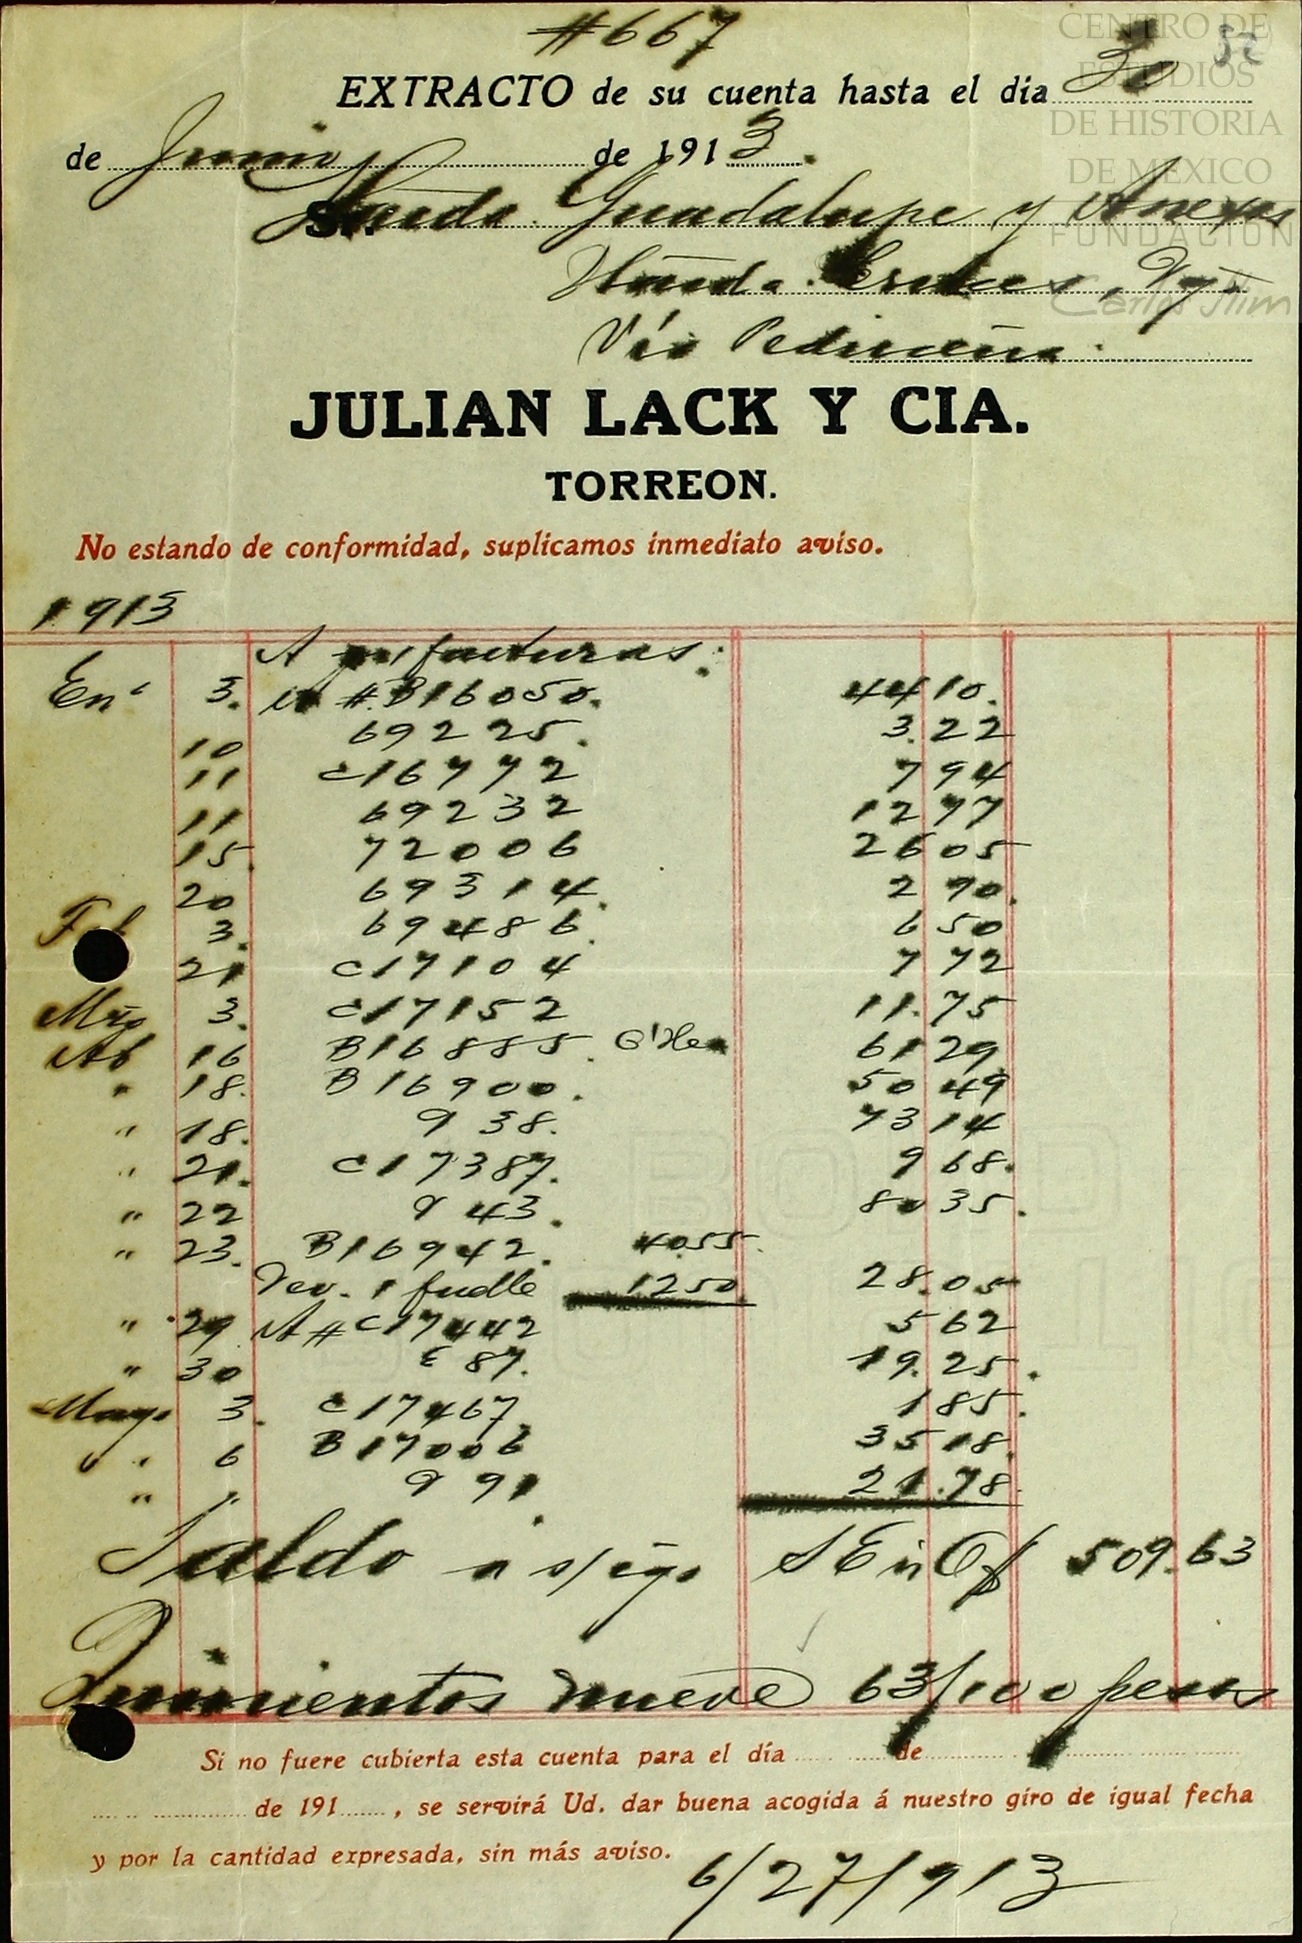 #667
52
CENTRO DE
ESTUDIOS
DE HISTORIA
DE MEXICO
FUNDACION
Carlos Slim
EXTRACTO de su cuenta hasta el dia 30
de Junio de 1913.
Sr. Hacda. Guadalupe y Anexas
Hacda. Cruces, Dgo.
Vía Pedriceña.
JULIAN LACK Y CIA.
TORREON.
No estando de conformidad, suplicamos inmediato aviso.
1913
A facturas:
En° 3. #B16050. 44 10.
10 69225. 3.22
11 C16772 7 94
11 69232 12 77
15. 72006 26 05
20 69314. 2 70.
Feb 3. 69486. 6 50
21 C17104 7 72
Mzo 3. C17152 11.75
Ab 16 B16885. 61 29
" 18. B16900. 50 49
" 18. 938. 73 14
" 21. C17387. 9 68.
" 22 943. 80 35.
" 23. B16942. 40.55.
Dev. 1 fuelle 12 50 28.05
" 29 A # C17442 5 62
" 30 E 87. 19.25.
Mayo 3. C17467. 1 85.
" " 6 B17006 35 18.
" " 991. 21.78.
Saldo a s/cgo S E ú O $ 509.63
Quinientos nueve 63/100 pesos
Si no fuere cubierta esta cuenta para el día de
de 191 , se servirá Ud. dar buena acogida á nuestro giro de igual fecha
y por la cantidad expresada, sin más aviso.
6/27/913